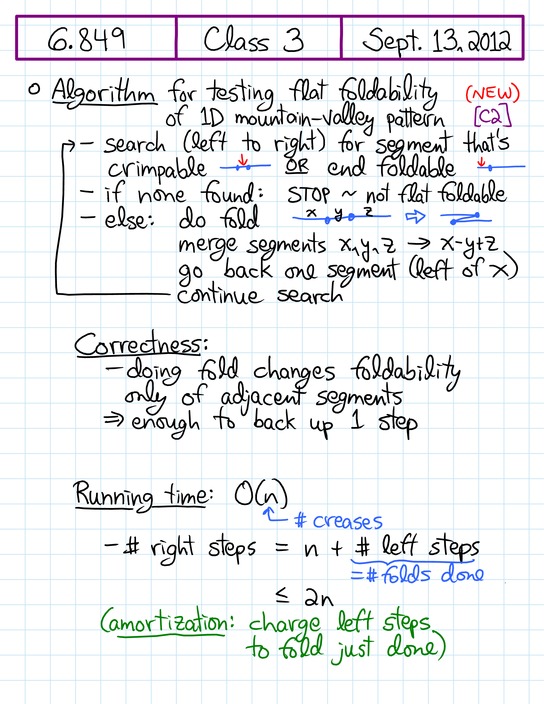 6.849 Class 3 Sept. 13, 2012
o Algorithm for testing flat foldability (NEW)
of 1D mountain-valley pattern [C2]
- search (left to right) for segment that's
crimpable OR end foldable
- if none found: STOP ~ not flat foldable
- else: do fold x y z ⇨
merge segments x, y, z → x-y+z
go back one segment (left of x)
continue search
Correctness:
- doing fold changes foldability
only of adjacent segments
⇒ enough to back up 1 step
Running time: O(n)
# creases
- # right steps = n + # left steps
= # folds done
≤ 2n
(amortization: charge left steps
to fold just done)